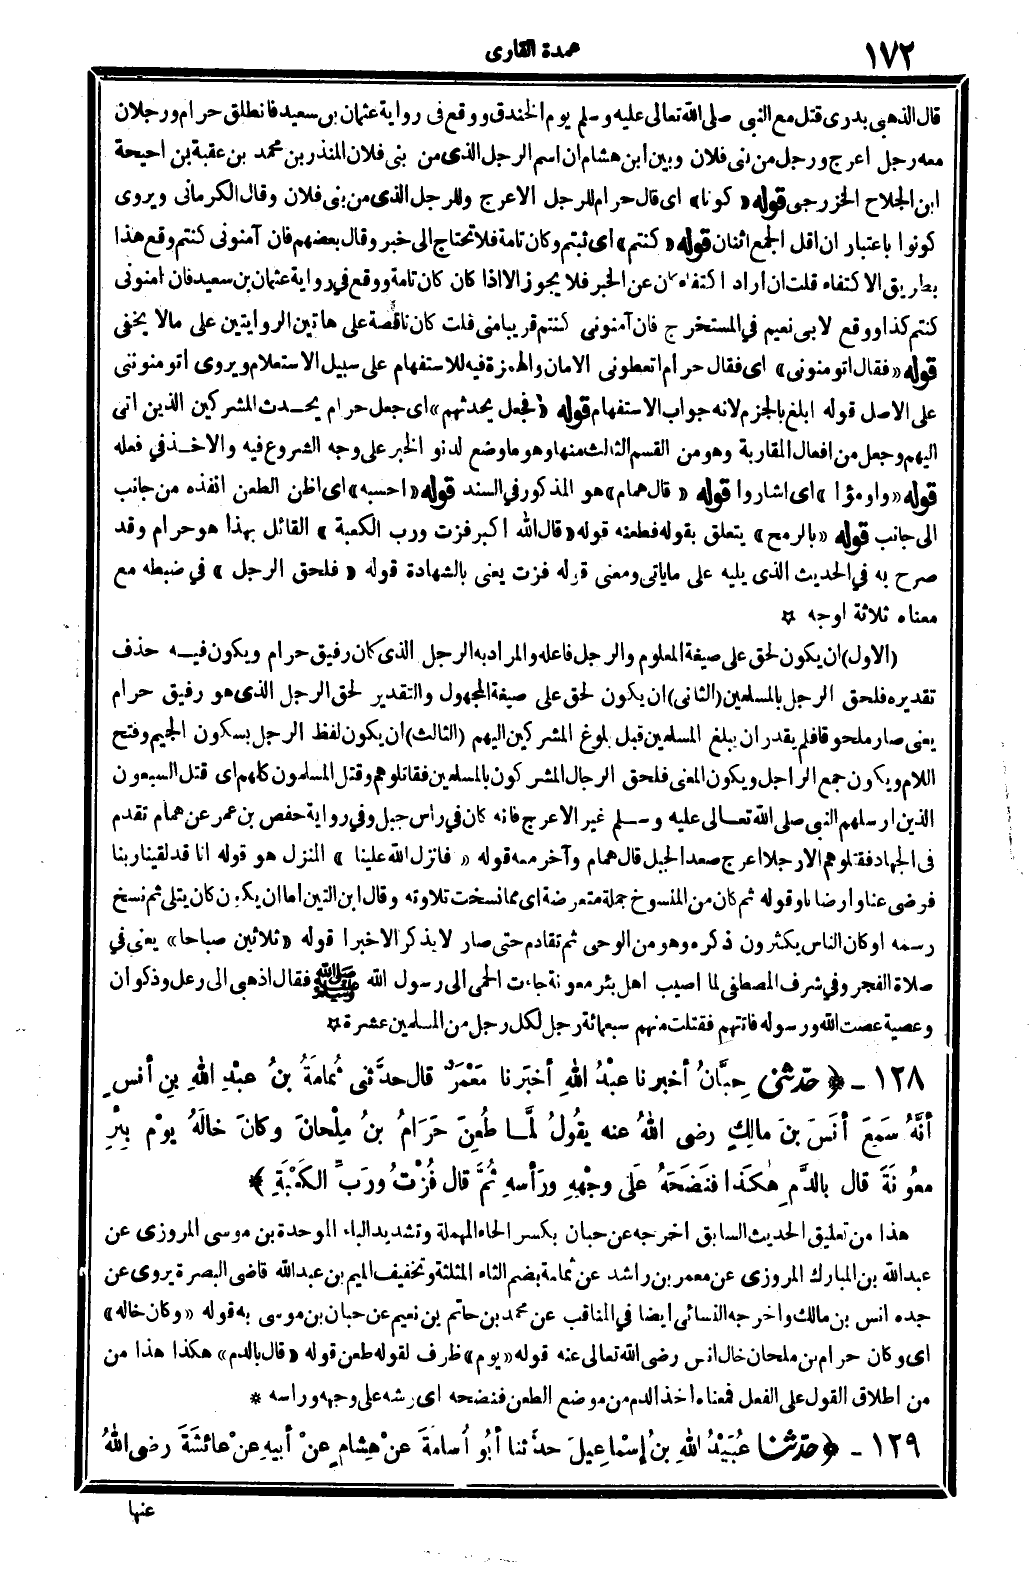 ١٧٢
عمدة القارى
قال الذهبى بدرى قتل مع النبى صلى الله تعالى عليه وسلم يوم الخندق ووقع فى رواية عثمان بن سعيد فانطلق حرام ورجلان
معه رجل اعرج ورجل من بنى فلان وبين ابن هشام ان اسم الرجل الذى من بنى فلان المنذر بن محمد بن عقبة بن احيحة
ابن الجلاح الخزرجى قوله « كونا » اى قال حرام للرجل الاعرج وللرجل الذى من بنى فلان وقال الكرمانى ويروى
كونوا باعتبار ان اقل الجمع اثنان قوله « كنتم » اى ثبتم وكان تامة فلا تحتاج الى خبر وقال بعضهم فان آمنونى كنتم وقع هذا
بطريق الاكتفاء قلت ان اراد اكتفاء كان عن الخبر فلا يجوز الا اذا كان كان تامة ووقع في رواية عثمان بن سعيد فان امنونى
كنتم كذا ووقع لابى نعيم في المستخرج فان آمنونى كنتم قريبا منى قلت كان ناقصة على هاتين الروايتين على مالا يخفى
قوله « فقال اتومنونى » اى فقال حرام اتعطونى الامان والهمزة فيه للاستفهام على سبيل الاستعلام ويروى اتومنوننى
على الاصل قوله ابلغ بالجزم لانه جواب الاستفهام قوله « فجعل يحدثهم » اى جعل حرام يحدث المشركين الذين اتى
اليهم وجعل من افعال المقاربة وهو من القسم الثالث منها وهو ما وضع لدنو الخبر على وجه الشروع فيه والاخذ في فعله
قوله « واومؤا » اى اشاروا قوله « قال همام » هو المذكور في السند قوله « احسبه » اى اظن الطعن انفذه من جانب
الى جانب قوله « بالرمح » يتعلق بقوله فطعنه قوله « قال الله اكبر فزت ورب الكعبة » القائل بهذا هو حرام وقد
صرح به في الحديث الذى يليه على ما ياتى ومعنى قوله فزت يعنى بالشهادة قوله « فلحق الرجل » في ضبطه مع
معناه ثلاثة اوجه ☆
(الاول) ان يكون لحق على صيغة المعلوم والرجل فاعله والمراد به الرجل الذى كان رفيق حرام ويكون فيه حذف
تقديره فلحق الرجل بالمسلمين (الثانى) ان يكون لحق على صيغة المجهول والتقدير لحق الرجل الذى هو رفيق حرام
يعنى صار ملحوقا فلم يقدر ان يبلغ المسلمين قبل بلوغ المشركين اليهم (الثالث) ان يكون لفظ الرجل بسكون الجيم وفتح
اللام ويكون جمع الراجل ويكون المعنى فلحق الرجال المشركون بالمسلمين فقاتلوهم وقتل المسلمون كلهم اى قتل السبعون
الذين ارسلهم النبى صلى الله تعالى عليه وسلم غير الاعرج فانه كان في رأس جبل وفي رواية حفص بن عمر عن همام تقدم
فى الجهاد فقتلوهم الا رجلا اعرج صعد الجبل قال همام وآخر معه قوله « فانزل الله علينا » المنزل هو قوله انا قد لقينا ربنا
فرضى عنا وارضانا وقوله ثم كان من المنسوخ جملة معترضة اى مما نسخت تلاوته وقال ابن التين اما ان يكون كان يتلى ثم نسخ
رسمه او كان الناس يكثرون ذكره وهو من الوحى ثم تقادم حتى صار لا يذكر الا خبرا قوله « ثلاثين صباحا » يعنى في
صلاة الفجر وفي شرف المصطفى لما اصيب اهل بئر معونة جاءت الحمى الى رسول الله ﷺ فقال اذهبى الى رعل وذكوان
وعصية عصت الله ورسوله فاتتهم فقتلت منهم سبعمائة رجل لكل رجل من المسلمين عشرة ☆
١٢٨ - ﴿ حَدّثنى حِبَّانُ أخبرنا عبْدُ اللهِ أخبَرنا مَعْمَرٌ قال حدَّثنى ثُمامَةُ بنُ عبْدِ اللهِ بنِ أنسٍ
أنَّهُ سَمِعَ أنَسَ بنَ مالِكٍ رضى اللهُ عنه يقُولُ لمَّا طُعِنَ حَرَامُ بنُ مِلْحانَ وكانَ خالَهُ يوْم بِئْرِ
معُونَةَ قال بالدَّمِ هٰكَذَا فنَضَحَهُ عَلَى وجْهِهِ ورَأسهِ ثُمَّ قال فُزْتُ ورَبِّ الكَعْبَةِ ﴾
هذا من تعليق الحديث السابق اخرجه عن حبان بكسر الحاء المهملة وتشديد الباء الموحدة بن موسى المروزى عن
عبدالله بن المبارك المروزى عن معمر بن راشد عن ثمامة بضم الثاء المثلثة وتخفيف الميم بن عبدالله قاضى البصرة يروى عن
جده انس بن مالك واخرجه النسائى ايضا في المناقب عن محمد بن حاتم بن نعيم عن حبان بن موسى به قوله « وكان خاله »
اى وكان حرام بن ملحان خال انس رضى الله تعالى عنه قوله « يوم » ظرف لقوله طعن قوله « قال بالدم » هكذا هذا من
من اطلاق القول على الفعل فمعناه اخذ الدم من موضع الطعن فنضحه اى رشه على وجهه وراسه *
١٢٩ - ﴿ حَدّثنا عُبَيْدُ اللهِ بنُ إسْماعِيلَ حدَّثنا أبُو أُسامَةَ عنْ هِشامٍ عنْ أبِيهِ عنْ عائشَةَ رضى اللهُ
عنها